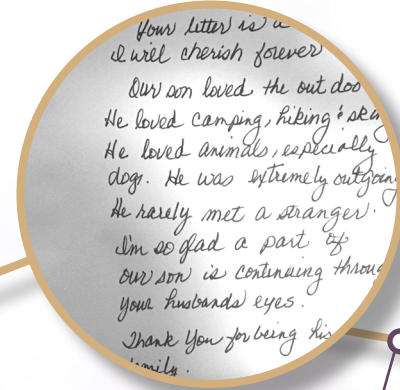 Your letter is a
I will cherish forever
Our son loved the out doo
He loved camping, hiking & skiin
He loved animals, especially
dogs. He was extremely outgoing
He rarely met a stranger.
I'm so glad a part of
our son is continuing throug
your husbands eyes.
Thank You for being his
family.